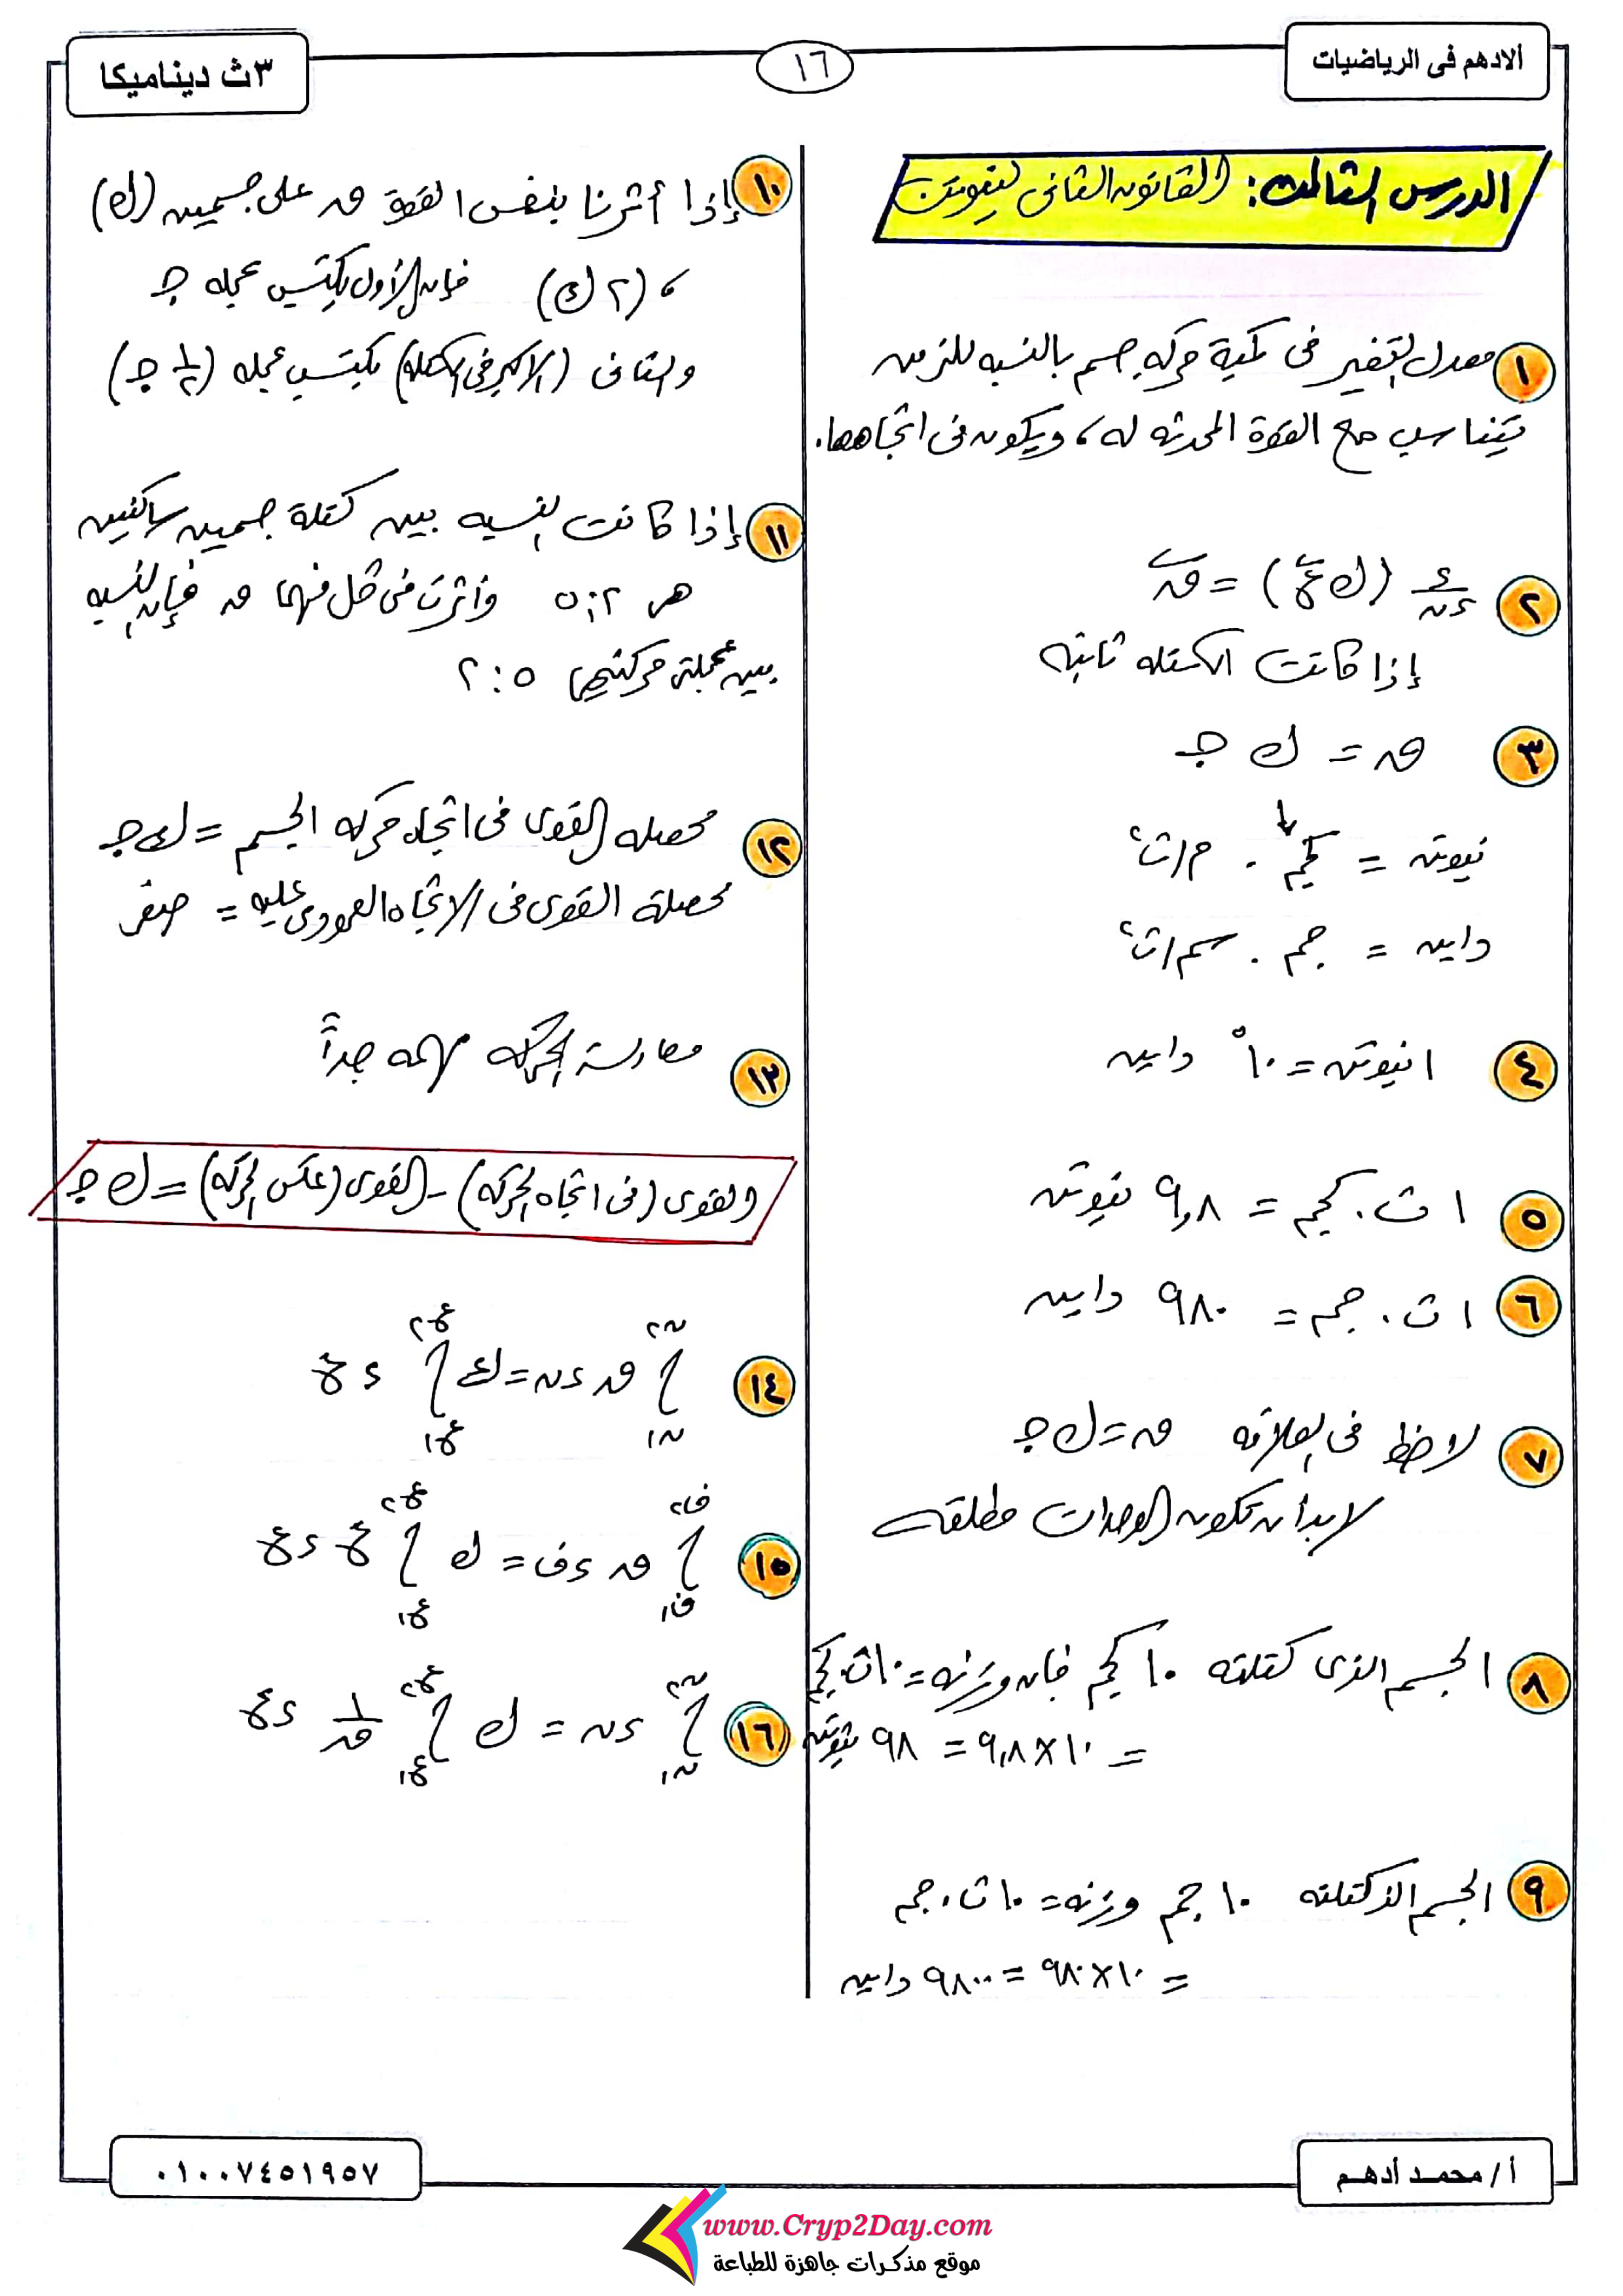 الادهم فى الرياضيات
١٦
٣ث ديناميكا
الدرس الثالث: القانون الثانى لنيوتن
١ معدل التغير فى كمية حركة جسم بالنسبه للزمن
يتناسب مع القوة المحدثه له، ويكون فى اتجاهها.
٢ ء/ءن (ك ع) = ق
إذا كانت الكتله ثابته
٣ ق = ك جـ
نيوتن = كجم . م/ث٢
داين = جم . سم/ث٢
٤ ١ نيوتن = ١٠^٥ داين
٥ ١ ث. كجم = ٩,٨ نيوتن
٦ ١ ث. جم = ٩٨٠ داين
٧ لاحظ فى العلاقه ق = ك جـ
لابد أن تكون الوحدات مطلقه
٨ الجسم الذى كتلته ١٠ كجم فان وزنه = ١٠ ث.كجم
= ١٠ × ٩,٨ = ٩٨ نيوتن
٩ الجسم الذ كتلته ١٠ جم وزنه = ١٠ ث.جم
= ١٠ × ٩٨٠ = ٩٨٠٠ داين
١٠ إذا أثرنا بنفس القوة ق على جسمين (ك)
، (٢ ك) فإن الأول يكتسب عجله جـ
والثانى (الاكبر فى الكتله) يكتسب عجله (١/٢ جـ)
١١ إذا كانت النسبه بين كتلة جسمين ساكنين
هى ٢ : ٥ وأثرت فى كل منهما ق فإن النسبه
بين عجلة حركتيهما ٥ : ٢
١٢ محصله القوى فى اتجاه حركه الجسم = ك جـ
محصلة القوى فى الاتجاه العمودى عليه = صفر
١٣ معادلة الحركه مهمه جداً
القوى (فى اتجاه الحركه) - القوى (عكس الحركه) = ك جـ
١٤ ∫ن١ ن٢ ق ءن = ك ∫ع١ ع٢ ء ع
١٥ ∫ف١ ف٢ ق ءف = ك ∫ع١ ع٢ ع ءع
١٦ ∫ن١ ن٢ ءن = ك ∫ع١ ع٢ ١/ق ءع
أ / محمـد أدهـم
٠١٠٠٧٤٥١٩٥٧
www.Cryp2Day.com
موقع مذكرات جاهزة للطباعة